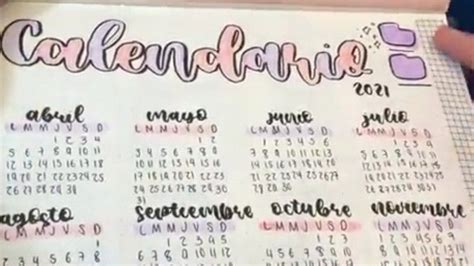 Calendario
2021
abril mayo junio julio
L M M J V S D L M M J V S D L M M J V S D L M M J V S D
1 2 3 4 1 2 1 2 3 4 5 6 1 2 3 4
5 6 7 8 9 10 11 3 4 5 6 7 8 9 7 8 9 10 11 12 13 5 6 7 8 9 10 11
12 13 14 15 16 17 18 10 11 12 13 14 15 16 14 15 16 17 18 19 20 12 13 14 15 16 17 18
19 20 21 22 23 24 25 17 18 19 20 21 22 23 21 22 23 24 25 26 27 19 20 21 22 23 24 25
26 27 28 29 30 24 25 26 27 28 29 30 28 29 30 26 27 28 29 30 31
31
agosto septiembre octubre noviembre
L M M J V S D L M M J V S D L M M J V S D L M M J V S D
1 1 2 3 4 5 1 2 3